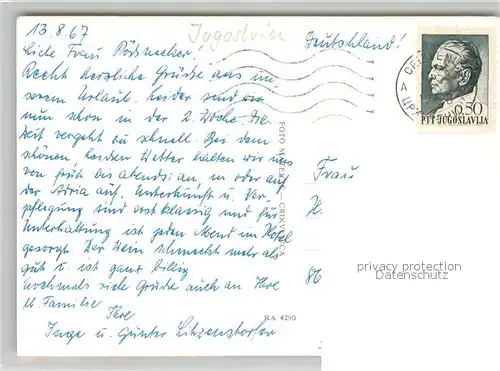 13.8.67
Jugoslavien
Deutschland!
Liebe Frau
Recht herzliche Grüße aus un-
serem Urlaub. Leider sind wir
nun schon in der 2. Woche. Die
Zeit vergeht zu schnell. Bei dem
schönen, heißen Wetter halten wir uns
von früh bis abends an, in oder auf
der Adria auf. Unterkunft u. Ver-
pflegung sind erstklassig und für
Unterhaltung ist jeden Abend im Hotel
gesorgt. Der Wein schmeckt mehr als
gut u. ist ganz billig
Nochmals viele Grüße auch an Ihre
Familie
Ihre
Inge u. Günter
FOTO CRIKVENICA
RA 4290
0.50
PTT JUGOSLAVIJA
Frau
H.
86
privacy protection
Datenschutz